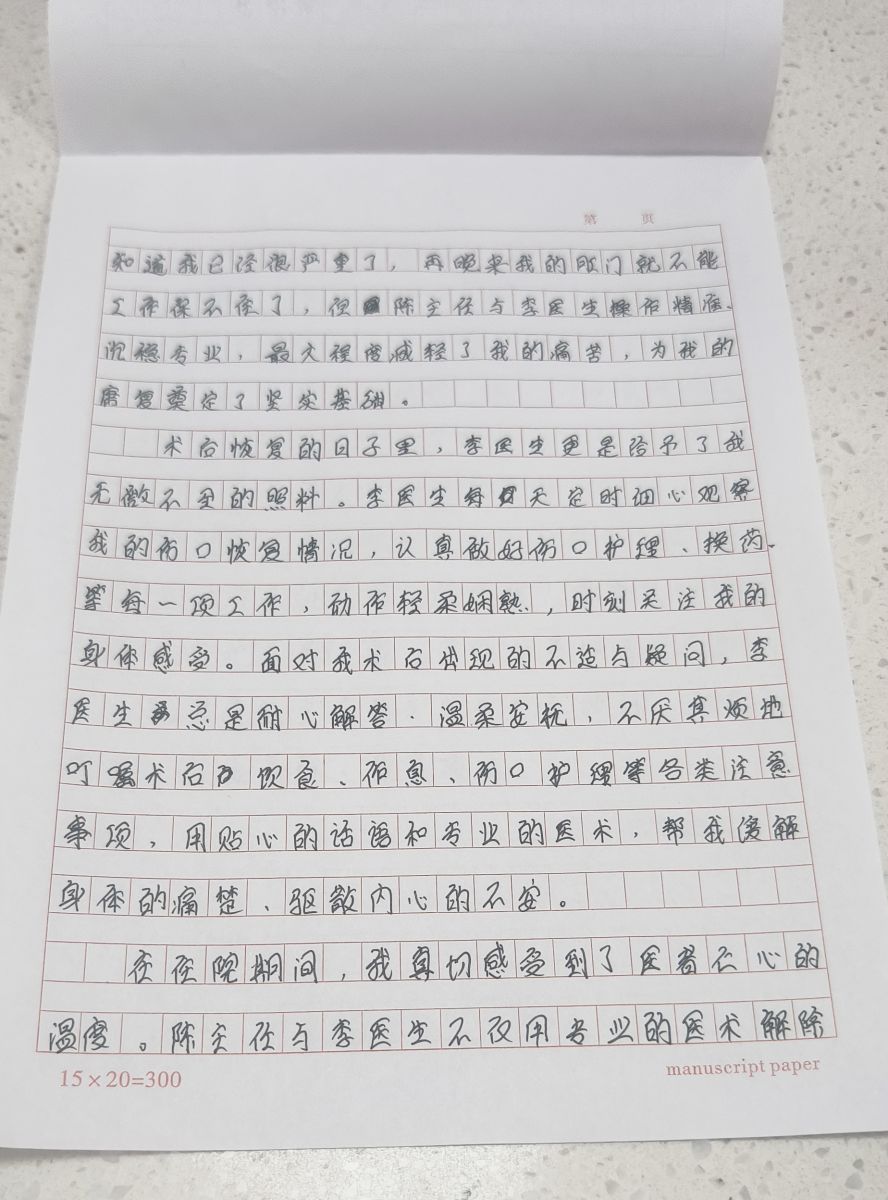 第 页
知道我已经很严重了，再晚来我的肛门就不能
工作保不住了，但陈主任与李医生操作精准、
沉稳专业，最大程度减轻了我的痛苦，为我的
康复奠定了坚实基础。
术后恢复的日子里，李医生更是给予了我
无微不至的照料。李医生每天定时细心观察
我的伤口恢复情况，认真做好伤口护理、换药、
等每一项工作，动作轻柔娴熟，时刻关注我的
身体感受。面对我术后出现的不适与疑问，李
医生总是耐心解答、温柔安抚，不厌其烦地
叮嘱术后饮食、作息、伤口护理等各类注意
事项，用贴心的话语和专业的医术，帮我缓解
身体的痛楚、驱散内心的不安。
在住院期间，我真切感受到了医者仁心的
温度。陈主任与李医生不仅用专业的医术解除
15×20=300
manuscript paper